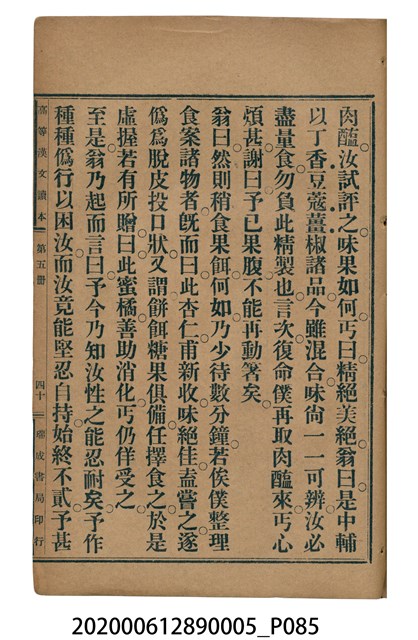 肉醢。汝試評之。味果如何。丐曰。精絕美絕。翁曰。是中輔
以丁香豆蔻薑椒諸品。今雖混合。味尙一一可辨。汝必
盡量食。勿負此精製也。言次。復命僕再取肉醢來。丐心
煩甚。謝曰。予已果腹。不能再動箸矣。
翁曰。然則稍食果餌何如。乃少待數分鐘。若俟僕整理
食案諸物者。旣而曰。此杏仁甫新收。味絕佳。盍嘗之。遂
僞爲脫皮投口狀。又謂餅餌糖果俱備。任擇食之。於是
虛握若有所贈。曰。此蜜橘善助消化。丐仍佯受之。
至是。翁乃起而言曰。予今乃知汝性之能忍耐矣。予作
種種僞行以困汝。而汝竟能堅忍自持。始終不貳。予甚
高等漢文讀本 第五册 四十 聯成書局印行
202000612890005_P085